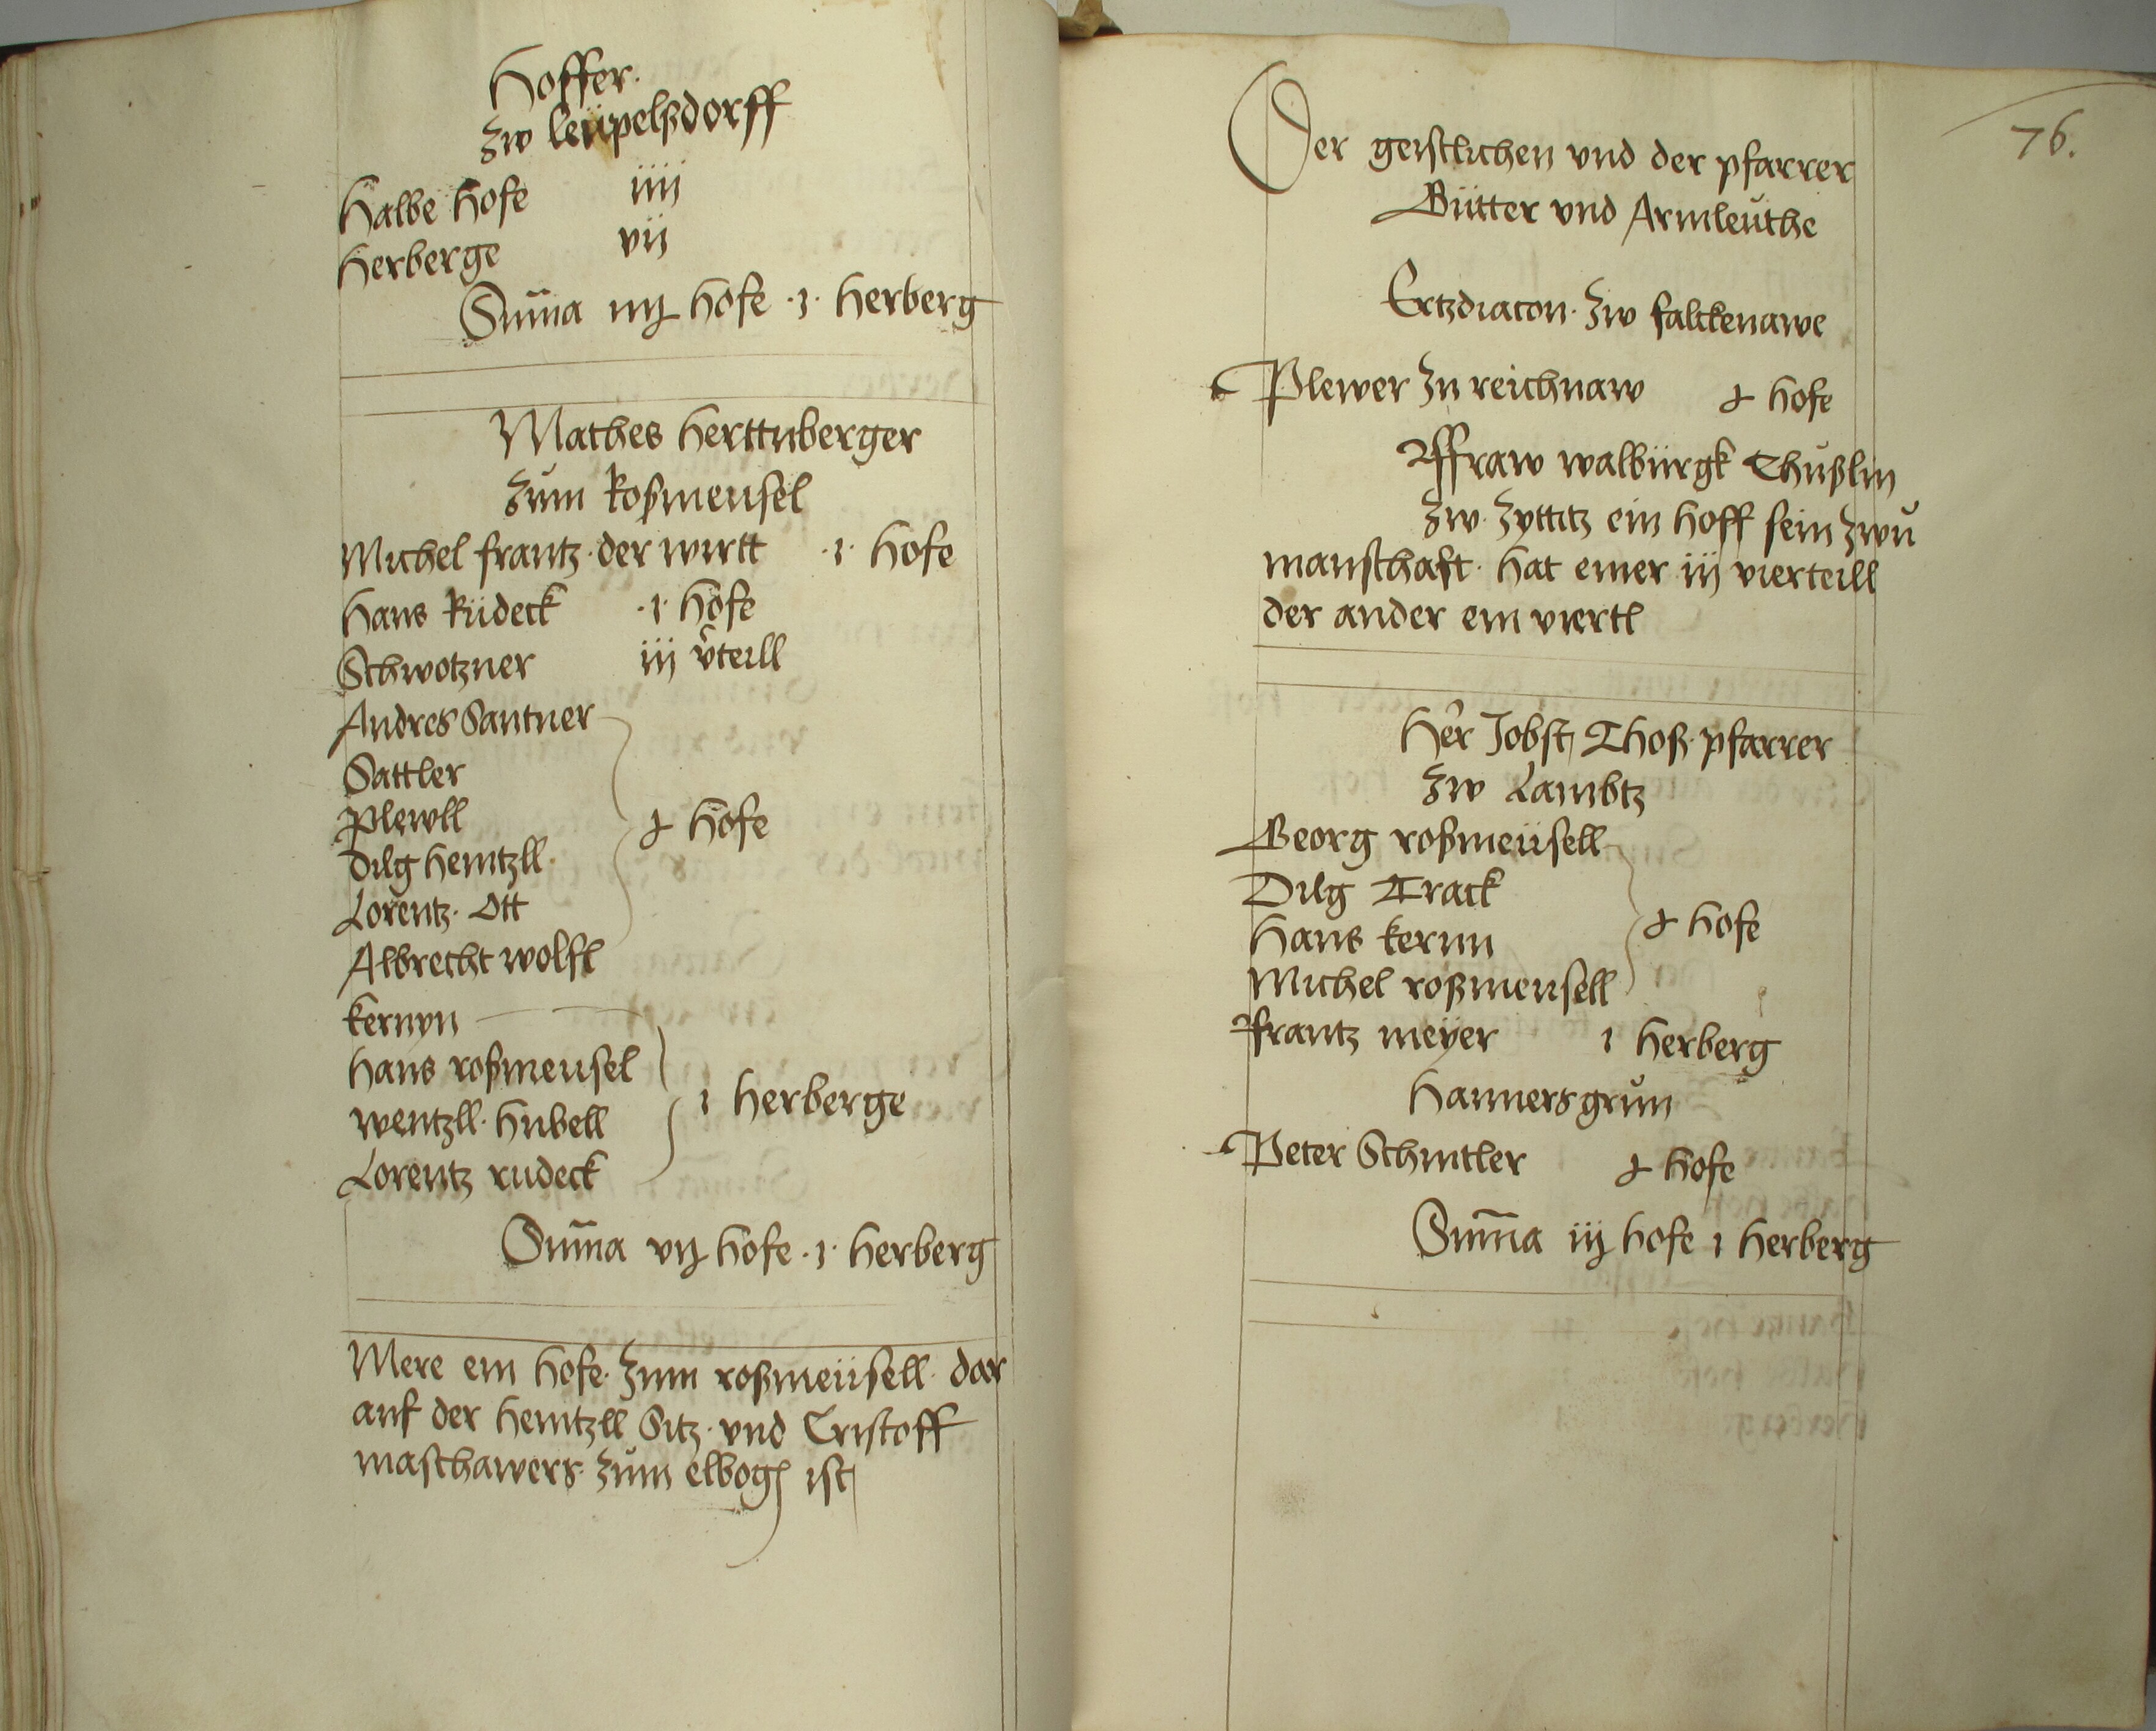 Hoffer.
zw leüpelßdorff
Halbe hofe iiij
Herberge vij
Suma iiij hofe ·1· herberg
Mathes herttnberger
zum Roßmeusel
Michel frantz der wirtt ·1· hofe
Hans Rüdeck ·1· hofe
Schwotzner iij vteill
Andres Santner
Sattler
Plewll
Dilg heintzll
½ hofe
Lorentz Ott
Albrecht wolfl
Kernyn
Hans roßmeusel
Wentzll hubell
1 herberge
Lorentz rudeck
Suma vij hofe ·1· herberg
Mere ein hofe zum roßmeüsell dar
auf der heintzll Sitz vnd Cristoff
maschawers zum elbogn ist
76.
Der geistlichen vnd der pfarrer
Gütter vnd Armleuthe
Ertzdiacon zw falckenawe
Plewer zu reichnaw ½ hofe
Ffraw walbürgk Thußlin
zw Zyttitz ein hoff sein zwu
manschaft hat einer iij vierteill
der ander ein viertl
Her Jobst Thoß pfarrer
zw Lambtz
Georg roßmeüsell
Dilg Track
Hans kernn
½ hofe
Michel roßmeusell
Frantz meyer 1 herberg
Hannersgrun
Peter Schmtler ½ hofe
Suma iij hofe 1 herberg